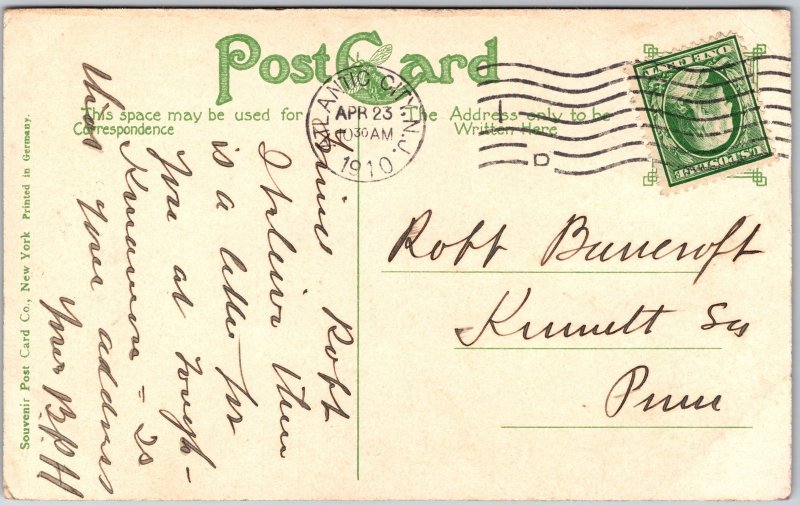 Post Card
This space may be used for
Correspondence
The Address only to be
Written Here
ATLANTIC CITY, N.J.
APR 23
10 30 AM
1910
U.S. POSTAGE
ONE CENT
Souvenir Post Card Co., New York Printed in Germany.
Robt
I believe there
is a letter for
You at Tough-
=is
this your address
Your B.P.H
Robt Bancroft
Kennett Sq
Penn